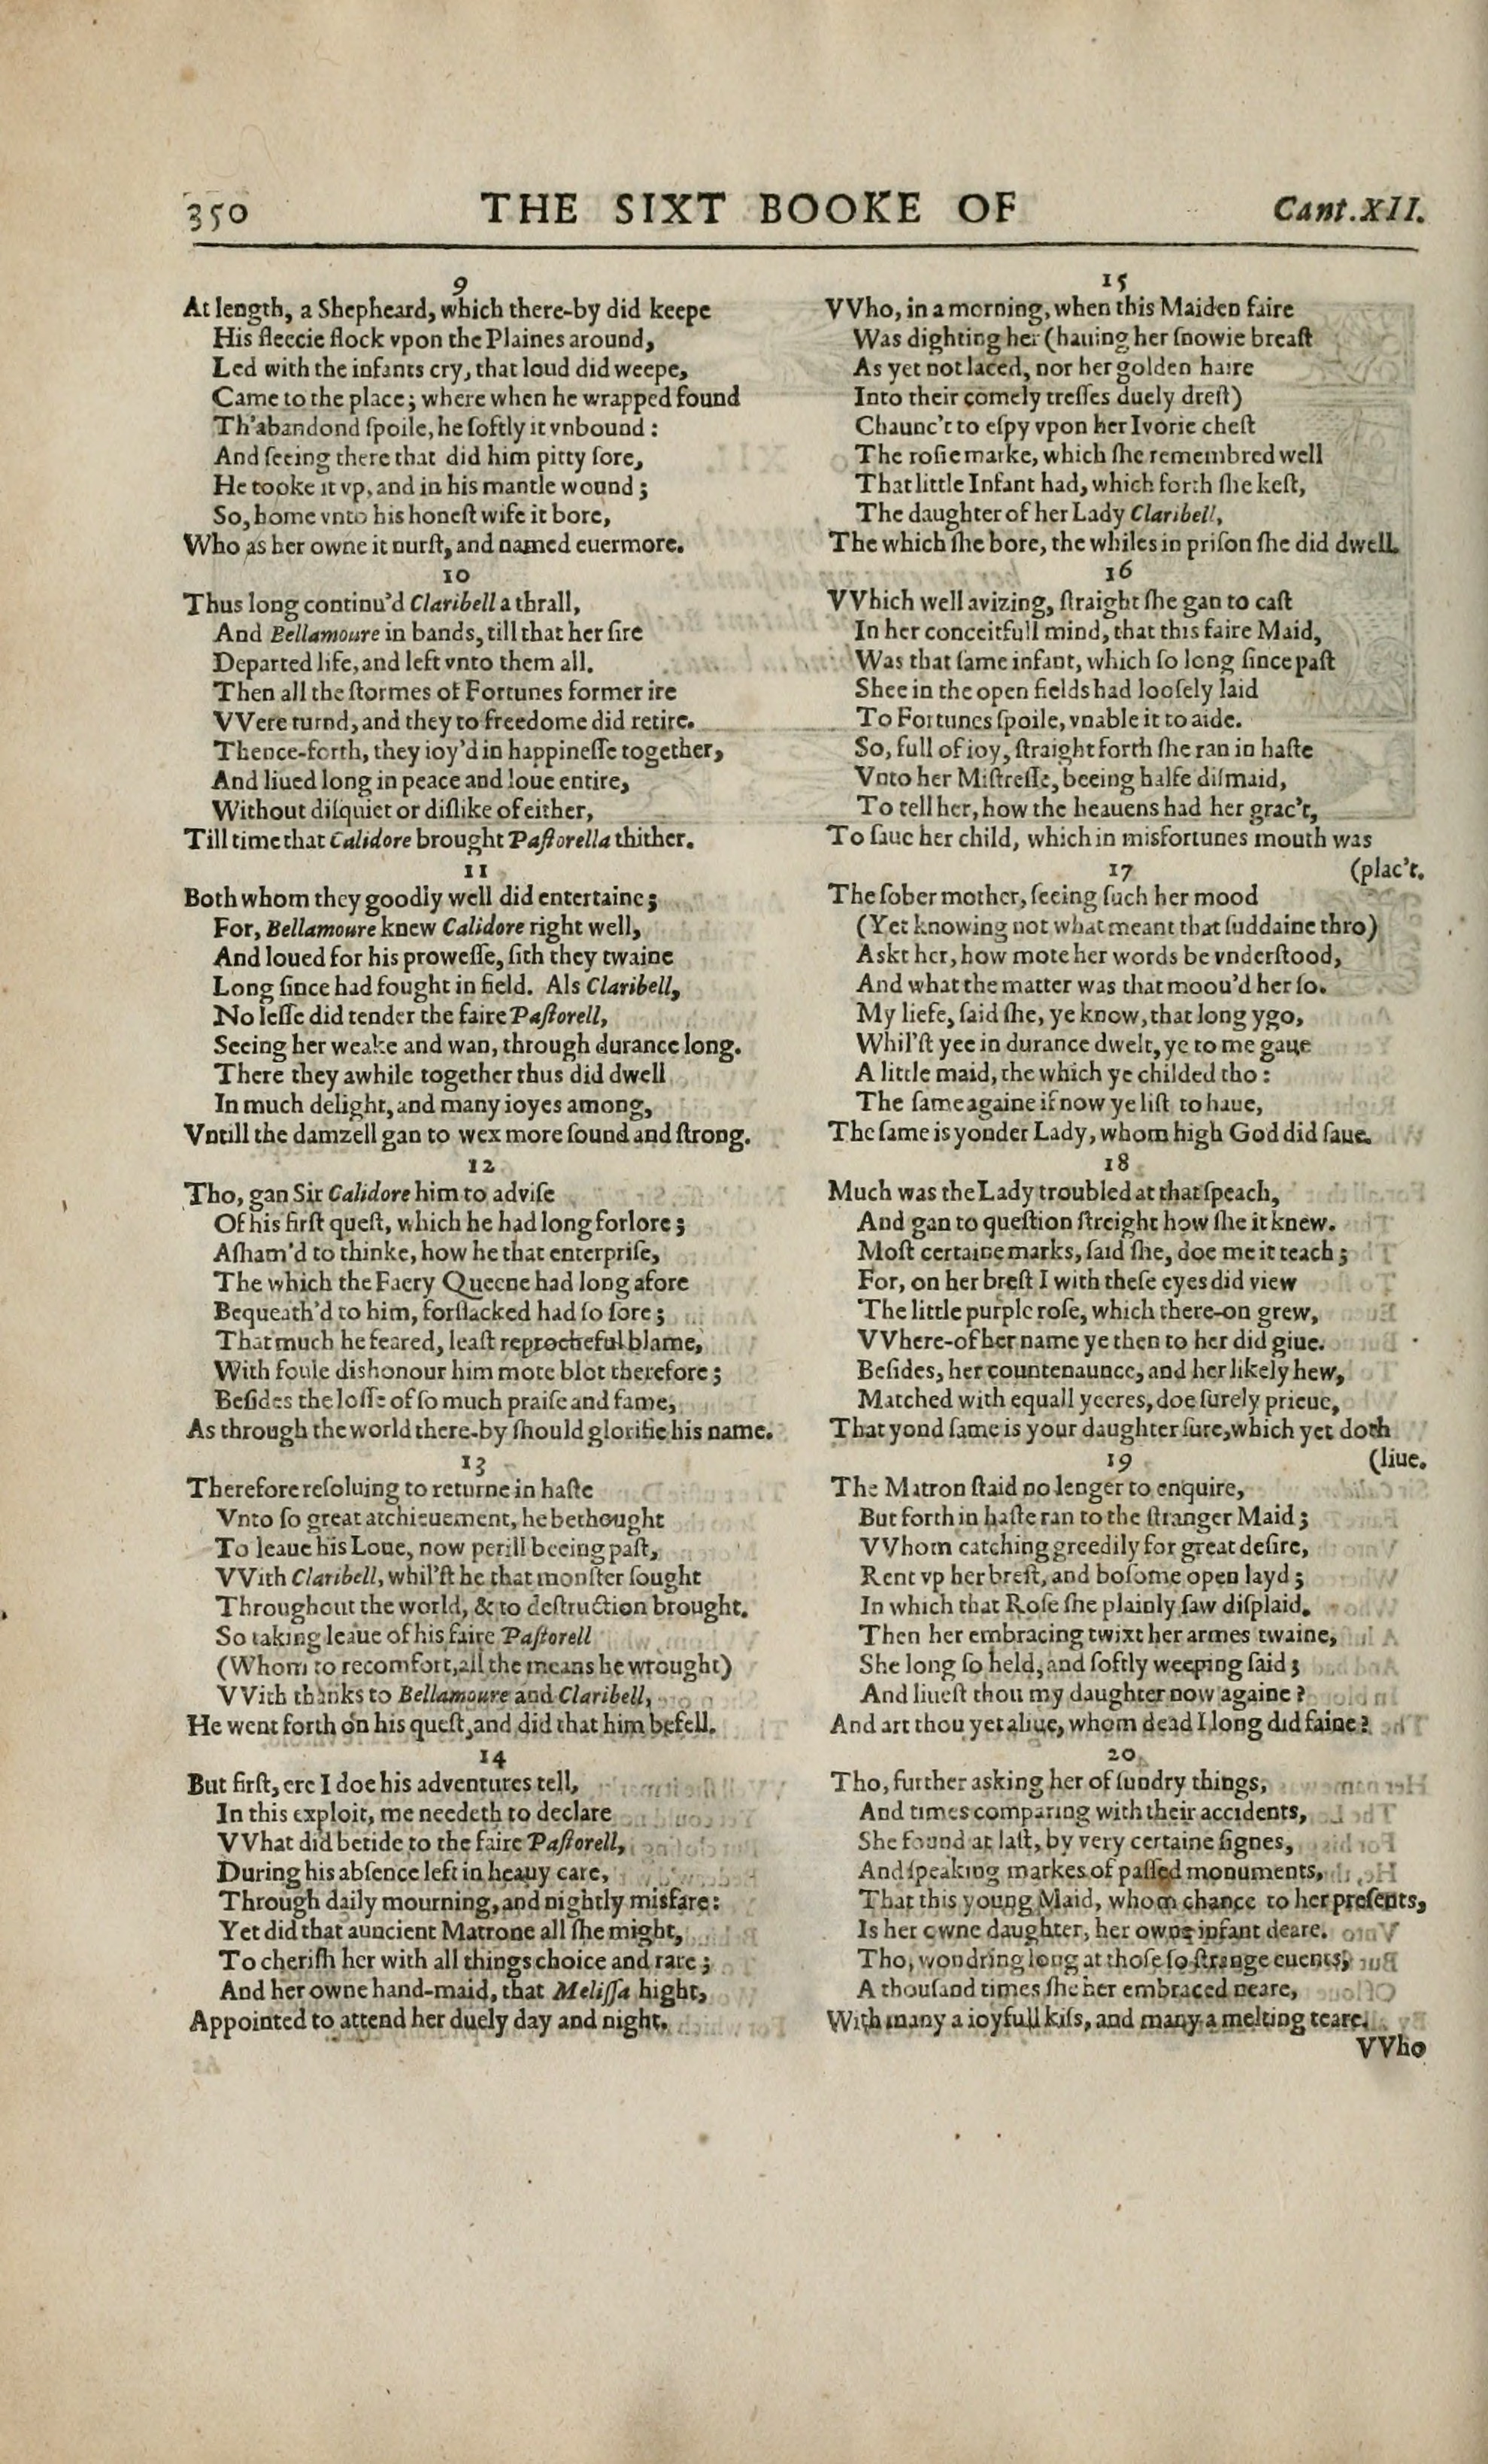 350 THE SIXT BOOKE OF Cant.XII.
9
At length, a Shepheard, which there-by did keepe
His fleecie flock vpon the Plaines around,
Led with the infants cry, that loud did weepe,
Came to the place; where when he wrapped found
Th'abandond ſpoile, he ſoftly it vnbound:
And ſeeing there that did him pitty ſore,
He tooke it vp, and in his mantle wound;
So, home vnto his honeſt wife it bore,
Who as her owne it nurſt, and named euermore.
10
Thus long continu'd Claribell a thrall,
And Bellamoure in bands, till that her ſire
Departed life, and left vnto them all.
Then all the ſtormes of Fortunes former ire
VVere turnd, and they to freedome did retire.
Thence-forth, they ioy'd in happineſſe together,
And liued long in peace and loue entire,
Without diſquiet or diſlike of either,
Till time that Calidore brought Paſtorella thither.
11
Both whom they goodly well did entertaine;
For, Bellamoure knew Calidore right well,
And loued for his proweſſe, ſith they twaine
Long ſince had fought in field. Als Claribell,
No leſſe did tender the faire Paſtorell,
Seeing her weake and wan, through durance long.
There they awhile together thus did dwell
In much delight, and many ioyes among,
Vntill the damzell gan to wex more ſound and ſtrong.
12
Tho, gan Sir Calidore him to adviſe
Of his firſt queſt, which he had long forlore;
Aſham'd to thinke, how he that enterpriſe,
The which the Faery Queene had long afore
Bequeath'd to him, forſlacked had ſo ſore;
That much he feared, leaſt reprocheful blame,
With foule dishonour him mote blot therefore;
Beſides the loſſe of ſo much praiſe and fame,
As through the world there-by ſhould glorifie his name.
13
Therefore reſoluing to returne in haſte
Vnto ſo great atchieuement, he bethought
To leaue his Loue, now perill beeing paſt,
VVith Claribell, whil'ſt he that monſter ſought
Throughout the world, & to deſtruction brought.
So taking leaue of his faire Paſtorell
(Whom to recomfort, all the means he wrought)
VVith thanks to Bellamoure and Claribell,
He went forth on his queſt, and did that him befell.
14
But firſt, ere I doe his adventures tell,
In this exploit, me needeth to declare
VVhat did betide to the faire Paſtorell,
During his abſence left in heauy care,
Through daily mourning, and nightly misfare:
Yet did that auncient Matrone all ſhe might,
To cheriſh her with all things choice and rare;
And her owne hand-maid, that Meliſſa hight,
Appointed to attend her duely day and night.
15
VVho, in a morning, when this Maiden faire
Was dighting her (hauing her ſnowie breaſt
As yet not laced, nor her golden haire
Into their comely treſſes duely dreſt)
Chaunc't to eſpy vpon her Ivorie cheſt
The roſie marke, which ſhe remembred well
That little Infant had, which forth ſhe keſt,
The daughter of her Lady Claribell,
The which ſhe bore, the whiles in priſon ſhe did dwell.
16
VVhich well avizing, ſtraight ſhe gan to caſt
In her conceitfull mind, that this faire Maid,
Was that ſame infant, which ſo long ſince paſt
Shee in the open fields had looſely laid
To Fortunes ſpoile, vnable it to aide.
So, full of ioy, ſtraight forth ſhe ran in haſte
Vnto her Miſtreſſe, beeing halfe diſmaid,
To tell her, how the heauens had her grac't,
To ſaue her child, which in misfortunes mouth was
(plac't.
17
The ſober mother, ſeeing ſuch her mood
(Yet knowing not what meant that ſuddaine thro)
Askt her, how mote her words be vnderſtood,
And what the matter was that moou'd her ſo.
My liefe, ſaid ſhe, ye know, that long ygo,
Whil'ſt yee in durance dwelt, ye to me gaue
A little maid, the which ye childed tho:
The ſame againe if now ye liſt to haue,
The ſame is yonder Lady, whom high God did ſaue.
18
Much was the Lady troubled at that ſpeach,
And gan to queſtion ſtreight how ſhe it knew.
Moſt certaine marks, ſaid ſhe, doe me it teach;
For, on her breſt I with theſe eyes did view
The little purple roſe, which there-on grew,
VVhere-of her name ye then to her did giue.
Beſides, her countenaunce, and her likely hew,
Matched with equall yeeres, doe ſurely prieue,
That yond ſame is your daughter ſure, which yet doth
(liue.
19
The Matron ſtaid no lenger to enquire,
But forth in haſte ran to the ſtranger Maid;
VVhom catching greedily for great deſire,
Rent vp her breſt, and boſome open layd;
In which that Roſe ſhe plainly ſaw diſplaid.
Then her embracing twixt her armes twaine,
She long ſo held, and ſoftly weeping ſaid;
And liueſt thou my daughter now againe?
And art thou yet aliue, whom dead I long did faine?
20
Tho, further asking her of ſundry things,
And times comparing with their accidents,
She found at laſt, by very certaine ſignes,
And ſpeaking markes of paſſed monuments,
That this young Maid, whom chance to her preſents,
Is her owne daughter, her owne infant deare.
Tho, wondring long at thoſe ſo ſtrange euents,
A thouſand times ſhe her embraced neare,
With many a ioyfull kiſs, and many a melting teare.
VVho